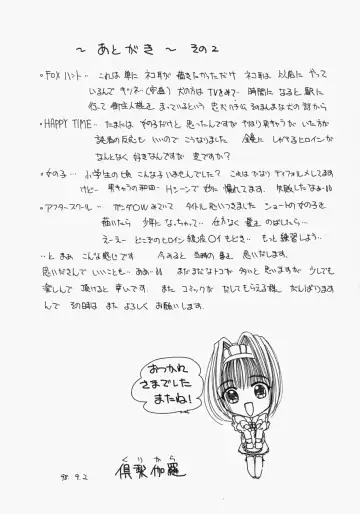 ～ あとがき ～ その2
・FOXハント… これは単に ネコ耳が 描きたかっただけ ネコ耳は 以前に やって
いるんで キツネに(安直) 犬の方は TVをみてて 時間に なると 駅に
行って 御主人様を まっているという
・HAPPY TIME… たまには 女の子だけと 思ったんですが やはり男キャラが いた方が
読者の反応も いいので こうなりました 鏡に しがみつくヒロインが
なんとなく 好きなんですが 変ですか?
・女の子… 小学生の頃 こんな子いませんでした? これは かなり ディフォルメしてます
けどー 男キャラの 和田… Hシーンで 妙に 慣れてます。失敗したなぁ
・アフタースクール… ガンダムWみていて タイトル思いつきました ショートの女の子を
描いたら 少年に なっちゃって… 仕方なく 髪を のばしたら…
えーえー どこぞのヒロイン 綾波○イもどき… もっと 練習しよう…
…と まぁ こんな感じです 今みると 当時の 事を 思いだします。
思いださしていいことも… まだまだなトコが 多いと 思いますが 少しでも
楽しんで 頂けると 幸いです。また コミックが だしてもらえる様 がんばりますんで
その時は また よろしく お願いします。
おつかれ
さまでした
またね!
くりから
倶梨伽羅
98. 9.2